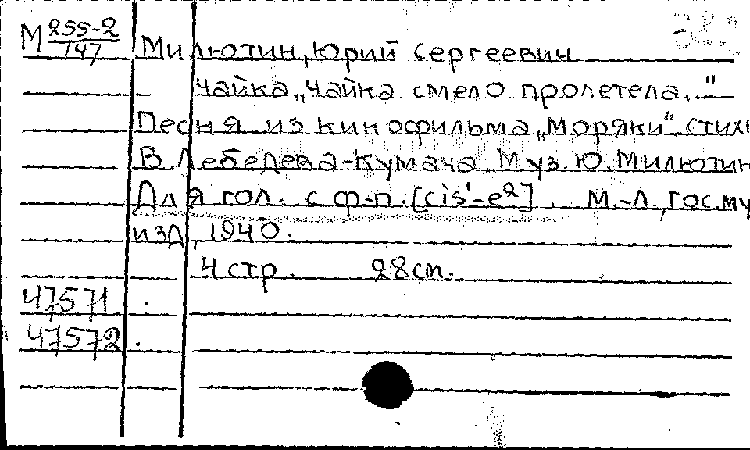 М 255-2/147 Милютин, Юрий Сергеевич
Чайка. „Чайка смело пролетела."
Песня из кинофильма „Моряки" стихи
В Лебедева-Кумача. Муз. Ю. Милютин
Для гол. с ф-п. [cis¹-e²]. М.-Л, Гос. му
изд, 1940.
4 стр. 28 сп.
47571
47572